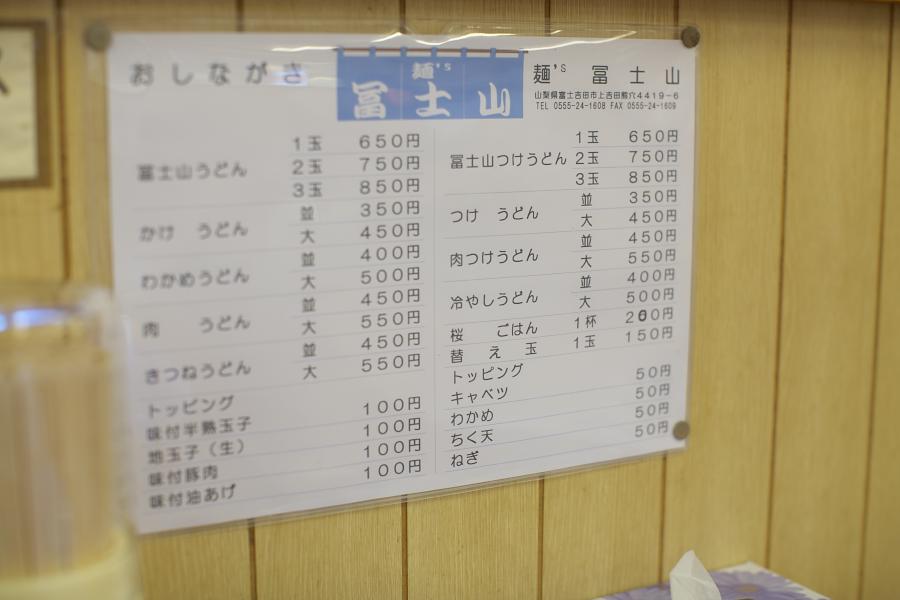 おしながき
麺's
冨士山
麺's 冨士山
山梨県富士吉田市上吉田熊穴4419-6
TEL 0555-24-1608 FAX 0555-24-1609
冨士山うどん
1玉 650円
2玉 750円
3玉 850円
かけ うどん
並 350円
大 450円
わかめうどん
並 400円
大 500円
肉 うどん
並 450円
大 550円
きつねうどん
並 450円
大 550円
トッピング
味付半熟玉子 100円
地玉子(生) 100円
味付豚肉 100円
味付油あげ 100円
冨士山つけうどん
1玉 650円
2玉 750円
3玉 850円
つけ うどん
並 350円
大 450円
肉つけうどん
並 450円
大 550円
冷やしうどん
並 400円
大 500円
桜 ごはん 1杯 200円
替え玉 1玉 150円
トッピング
キャベツ 50円
わかめ 50円
ちく天 50円
ねぎ 50円